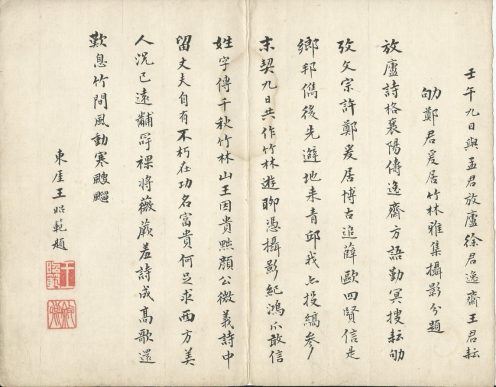 壬午九日與孟君放廬徐君逸齋王君耘
劬鄭君爰居竹林雅集攝影分題
放廬詩格襄陽儔逸齋方語勤冥搜耘劬
攷文宗許鄭爰居博古追薛歐四賢信是
鄉邦儁後先避地来青邱我亦投縞參
末契九日共作竹林遊聊憑攝影紀鴻爪敢信
姓字傳千秋竹林山王因貴黜顏公微義詩中
留丈夫自有不朽在功名富貴何足求西方美
人況已遠黼冔祼將薇蕨羞詩成高歌還
歎息竹間風動寒颼飀
東厓王範題